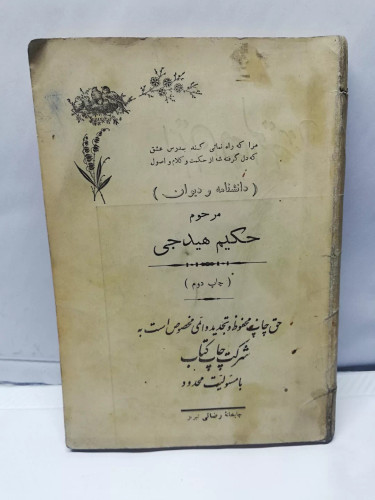 مرا که راه نمائی کند بدرس عشق
که دل گرفته شد از حکمت و کلام و اصول
( دانشنامه و دیوان )
مرحوم
حکیم هیدجی
( چاپ دوم )
حق چاپ محفوظ و تجدید دائمی مخصوص است به
شرکت چاپ کتاب
با مسئولیت محدود
چاپخانهٔ رضائی تبریز